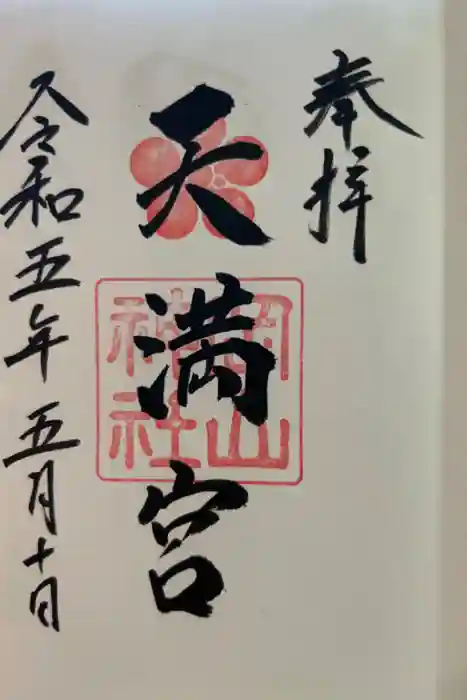 奉拝
天満宮
岡山
神社
令和五年五月十日